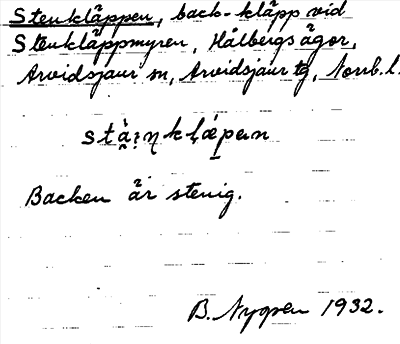 Stenkläppen, back-kläpp vid
Stenkläppmyren, Hålbergs ägor,
Arvidsjaur sn, Arvidsjaur tg, Norrb. l.
Backen är stenig.
B. Nygren 1932.